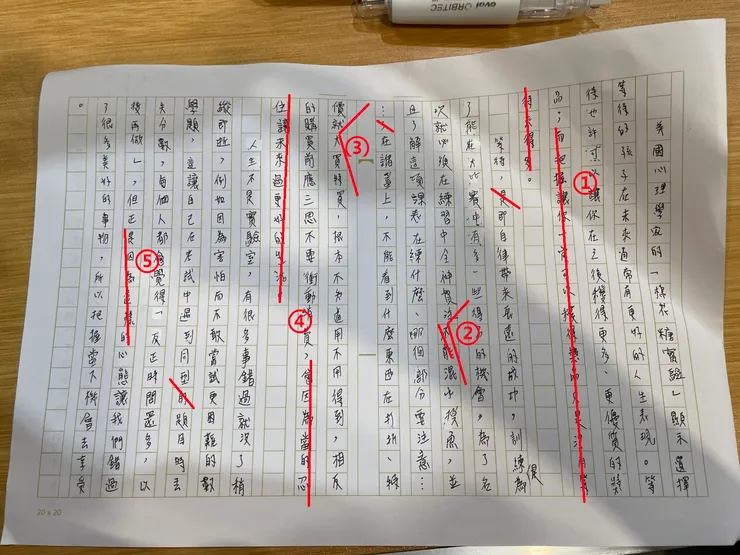 oval ORBITEC
美國心理學家的「棉花糖實驗」顯示選擇
等待的孩子在未來通常有更好的人生表現。等
待也許可以讓你在之後獲得更多、更優質的獎
品;而把握讓你一當可以獲得獎
①
待來得多。
等待,是即自律帶來長遠的成功,訓練
了能在大比賽中有多一些得名的機會,為了名
次就必須在練習中全神貫注不能混水摸魚,並
②
且了解這項課表在練什麼、哪個部分要注意…
…在上,不能看到什麼東西在打折、
價就大買特買,根本不知道用不用得到,相反
③
的購買前應三思不要衝動購買,會因為當的忍
④
住讓未來過更好的生活
人生不是實驗室,有很多事錯過就沒了稍
縱即逝,例如因為害怕而不敢嘗試更困難的數
學題,這讓自己在考試中遇到同型的題目時丟
失分數,每個人都會覺得「反正時間還多,以
⑤
後再做」,但正是因為這樣的心態讓我們錯過
了很多美好的事物,所以把握當下機會去享受
。
20 x 20